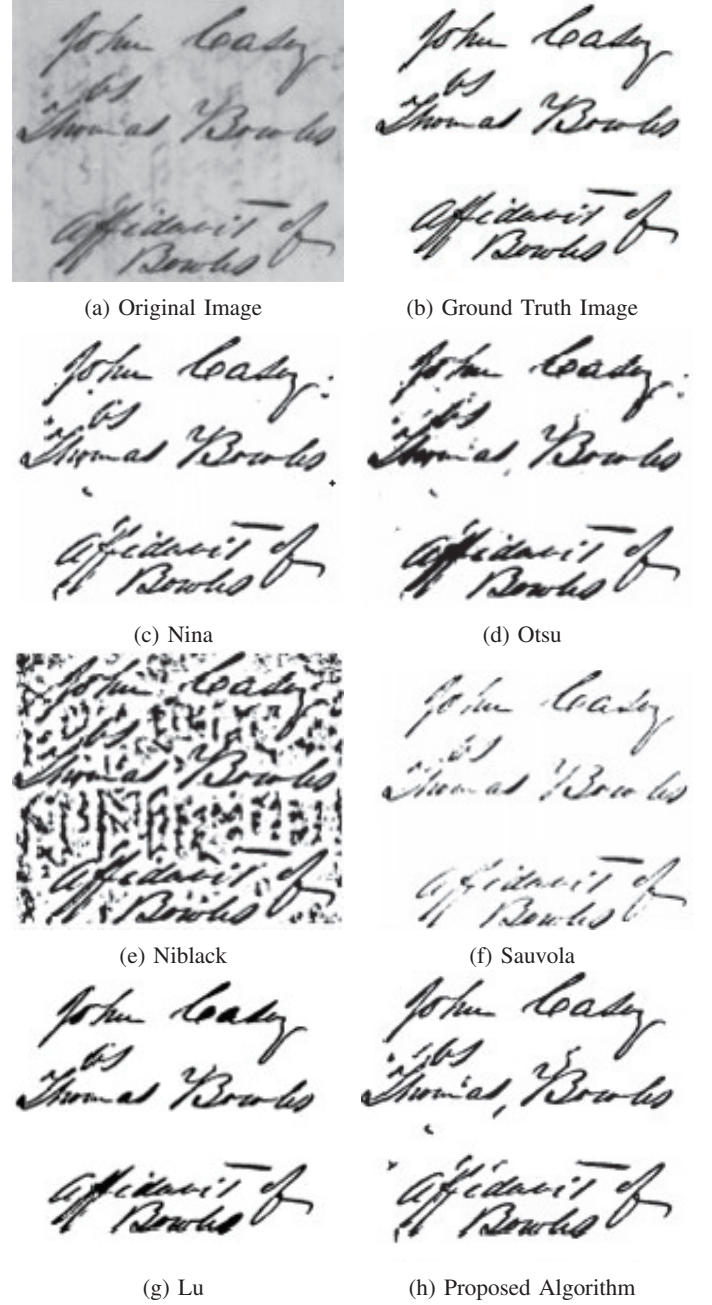 John Casey
vs
Thomas Bowles
Affidavit of
Bowles
(a) Original Image
John Casey
vs
Thomas Bowles
Affidavit of
Bowles
(b) Ground Truth Image
John Casey
vs
Thomas Bowles
Affidavit of
Bowles
(c) Nina
John Casey
vs
Thomas Bowles
Affidavit of
Bowles
(d) Otsu
John Casey
vs
Thomas Bowles
Affidavit of
Bowles
(e) Niblack
John Casey
vs
Thomas Bowles
Affidavit of
Bowles
(f) Sauvola
John Casey
vs
Thomas Bowles
Affidavit of
Bowles
(g) Lu
John Casey
vs
Thomas Bowles
Affidavit of
Bowles
(h) Proposed Algorithm